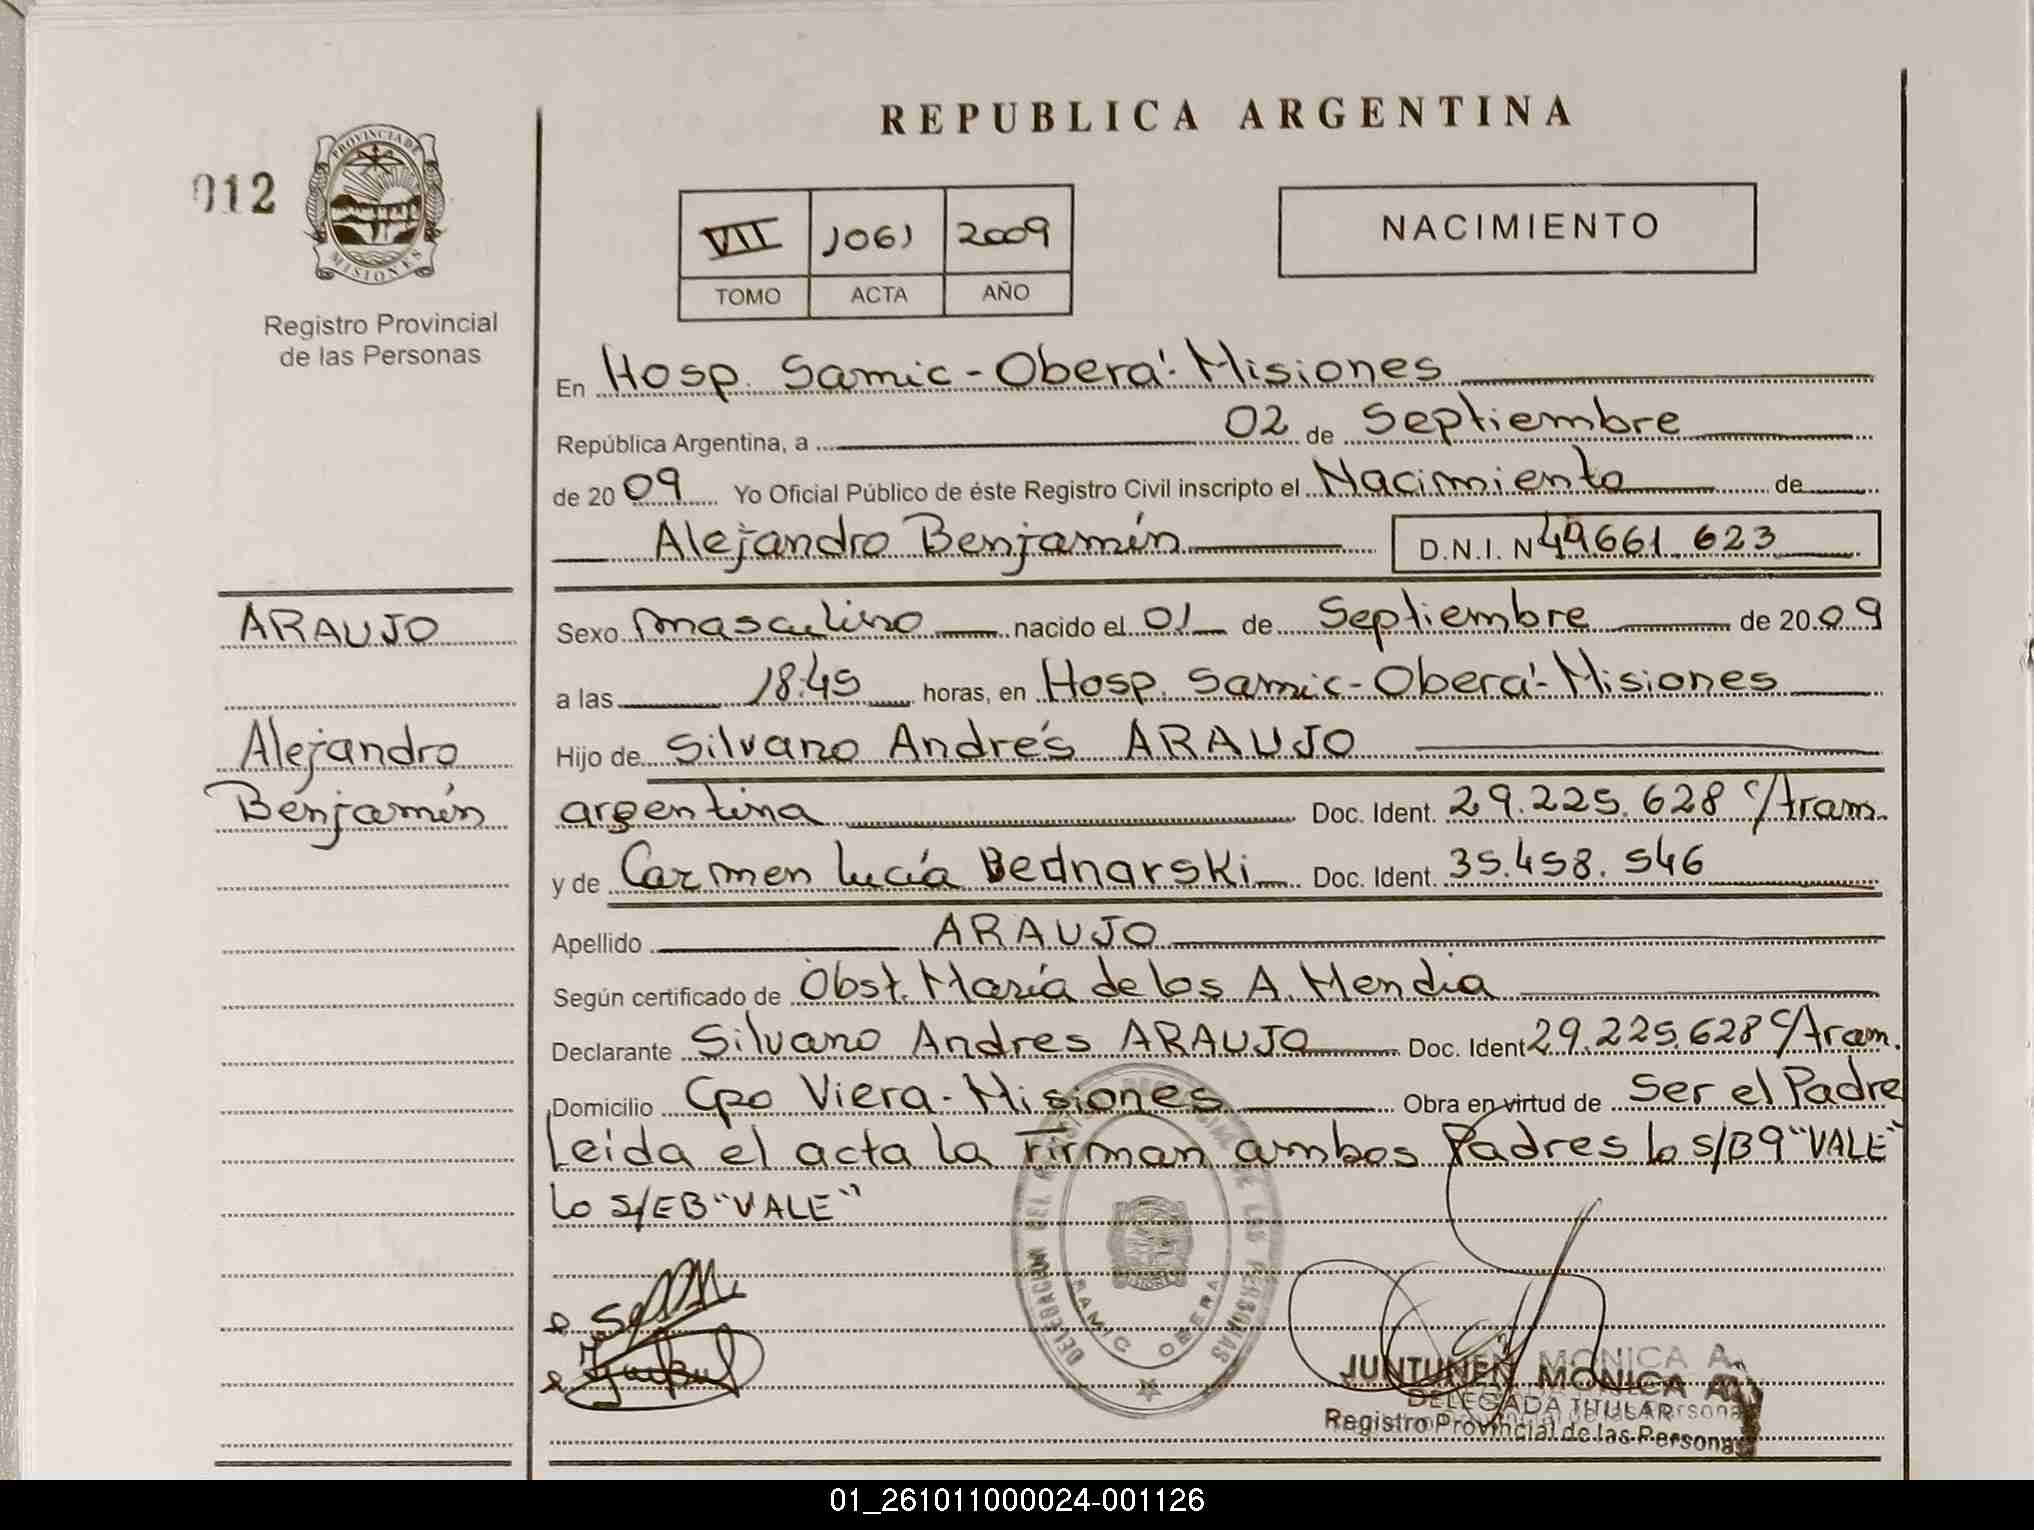 REPUBLICA ARGENTINA
012
PROVINCIA DE
MISIONES
Registro Provincial
de las Personas
VII 1061 2009
TOMO ACTA AÑO
NACIMIENTO
En Hosp. Samic - Oberá - Misiones
República Argentina, a 02 de Septiembre
de 2009 Yo Oficial Público de éste Registro Civil inscripto el Nacimiento de
Alejandro Benjamín D.N.I. N 49661.623
ARAUJO
Alejandro
Benjamín
Sexo masculino nacido el 01 de Septiembre de 2009
a las 18:45 horas, en Hosp. Samic - Oberá - Misiones
Hijo de Silvano Andrés ARAUJO
argentina Doc. Ident. 29.225.628 c/tram.
y de Carmen Lucía Bednarski Doc. Ident. 35.458.546
Apellido ARAUJO
Según certificado de Obst. María de los A. Mendia
Declarante Silvano Andres ARAUJO Doc. Ident 29.225.628 c/tram.
Domicilio Cpo Viera - Misiones Obra en virtud de Ser el Padre
Leida el acta la Firman ambos Padres lo S/B9 "VALE"
lo S/EB "VALE"
DELEGACION DEL REGISTRO PROVINCIAL DE LAS PERSONAS
SAMIC OBERA
JUNTUNEN MONICA A.
DELEGADA TITULAR
Registro Provincial de las Personas
01_261011000024-001126